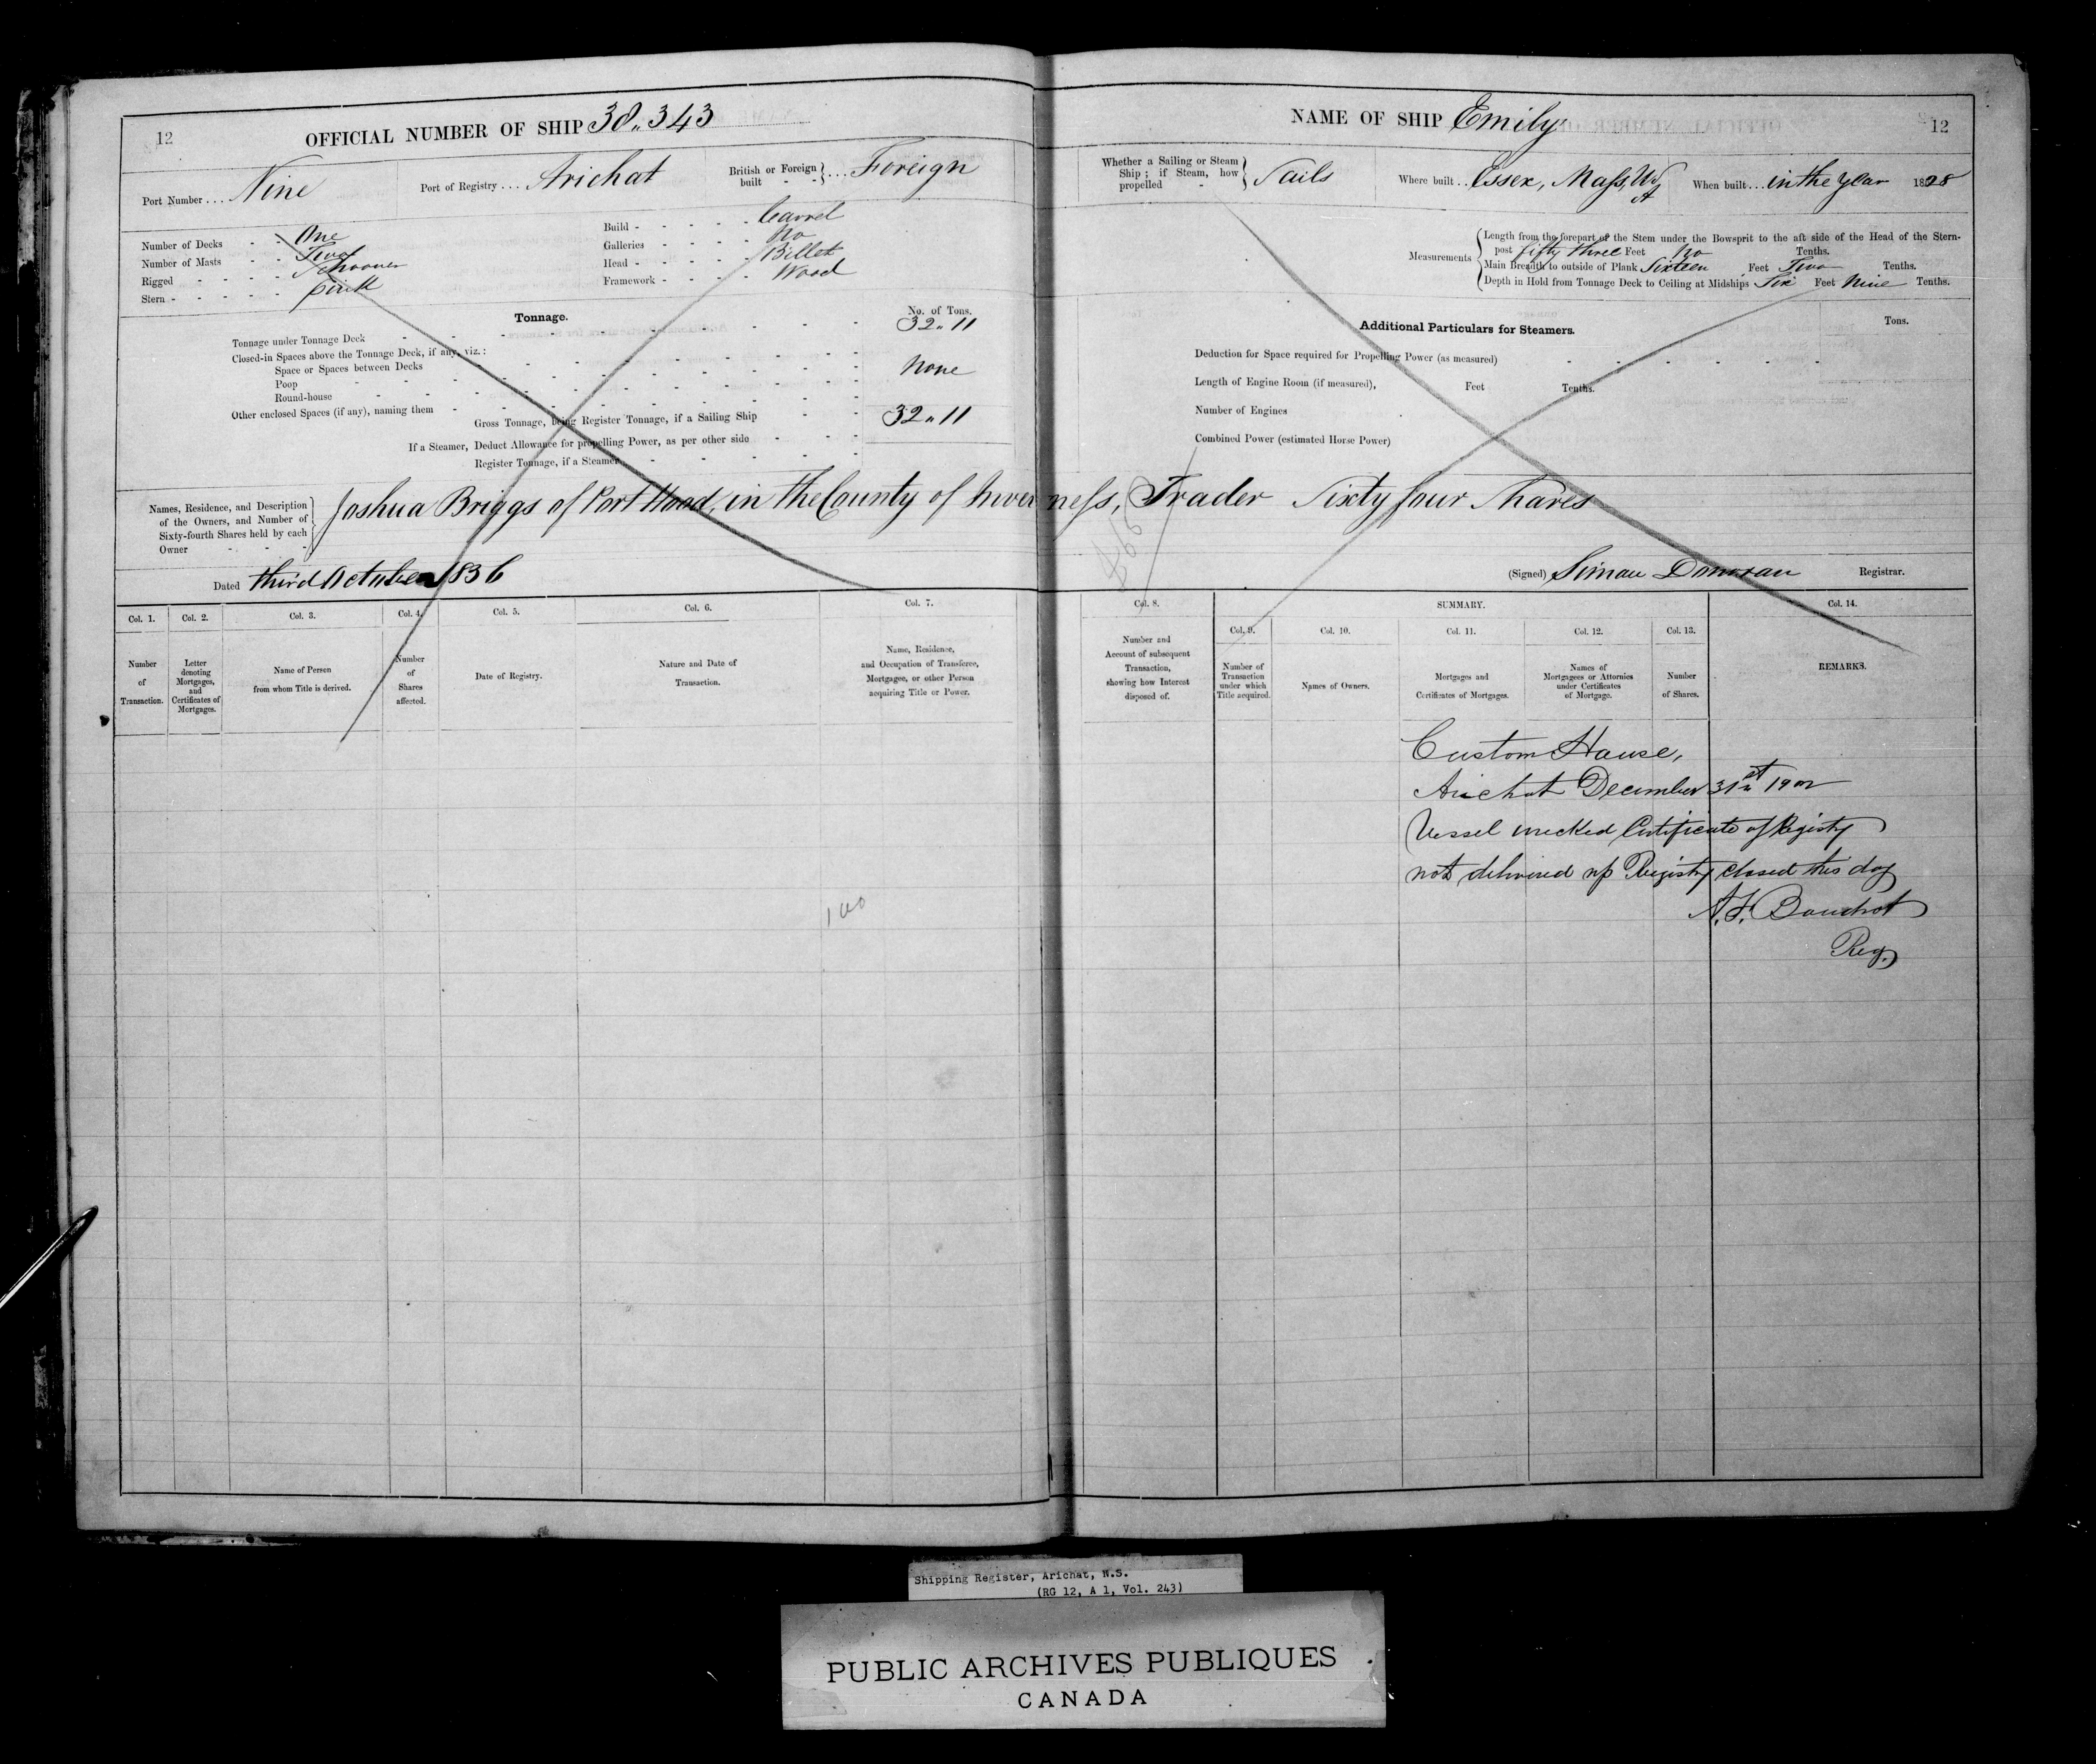 12
OFFICIAL NUMBER OF SHIP 38,,343
Port Number . . . Nine
Port of Registry . . . Arichat
British or Foreign built - - } . . . Foreign
Number of Decks - - One
Number of Masts - - Two
Rigged - - - - Schooner
Stern - - - - -
Build - - - - - Carvel
Galleries - - - - No
Head - - - - - Billet
Framework - - - - Wood
Tonnage.
No. of Tons.
Tonnage under Tonnage Deck 32,,11
Closed-in Spaces above the Tonnage Deck, if any, viz.:
Space or Spaces between Decks
Poop None
Round-house
Other enclosed Spaces (if any), naming them
Gross Tonnage, being Register Tonnage, if a Sailing Ship 32,,11
If a Steamer, Deduct Allowance for propelling Power, as per other side
Register Tonnage, if a Steamer
NAME OF SHIP Emily
12
Whether a Sailing or Steam Ship; if Steam, how propelled - } Sails
Where built . . Essex, Mass,
When built . . . in the Year 1828
Measurements
Length from the forepart of the Stem under the Bowsprit to the aft side of the Head of the Stern-
post fifty three Feet No Tenths.
Main Breadth to outside of Plank Sixteen Feet Two Tenths.
Depth in Hold from Tonnage Deck to Ceiling at Midships Six Feet Nine Tenths.
Additional Particulars for Steamers.
Tons.
Deduction for Space required for Propelling Power (as measured)
Length of Engine Room (if measured), Feet Tenths.
Number of Engines
Combined Power (estimated Horse Power)
Names, Residence, and Description
of the Owners, and Number of
Sixty-fourth Shares held by each
Owner - - -
Joshua Briggs of Port Hood, in the County of Inverness, Trader Sixty four Shares
Dated third October 1836
(Signed) Simau Donovan Registrar.
Col. 1.
Number
of
Transaction.
Col. 2.
Letter
denoting
Mortgages,
and
Certificates of
Mortgages.
Col. 3.
Name of Person
from whom Title is derived.
Col. 4.
Number
of
Shares
affected.
Col. 5.
Date of Registry.
Col. 6.
Nature and Date of
Transaction.
Col. 7.
Name, Residence,
and Occupation of Transferee,
Mortgagee, or other Person
acquiring Title or Power.
Col. 8.
Number and
Account of subsequent
Transaction,
showing how Interest
disposed of.
SUMMARY.
Col. 9.
Number of
Transaction
under which
Title acquired.
Col. 10.
Names of Owners.
Col. 11.
Mortgages and
Certificates of Mortgages.
Col. 12.
Names of
Mortgagees or Attornies
under Certificates
of Mortgage.
Col. 13.
Number
of Shares.
Col. 14.
REMARKS.
Custom House,
Arichat December 31st 1902
Vessel wrecked Certificate of Registry
not delivered up Registry closed this day
Reg.
100
Shipping Register, Arichat, N.S.
(RG 12, A 1, Vol. 243)
PUBLIC ARCHIVES PUBLIQUES
CANADA